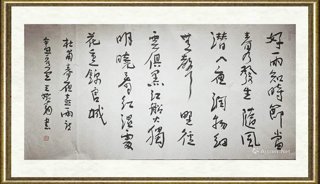 好雨知時節當
春乃發生隨風
潛入夜潤物細
無聲 野徑
雲俱黑江船火獨
明曉看紅濕處
花重錦官城
杜甫春夜喜雨